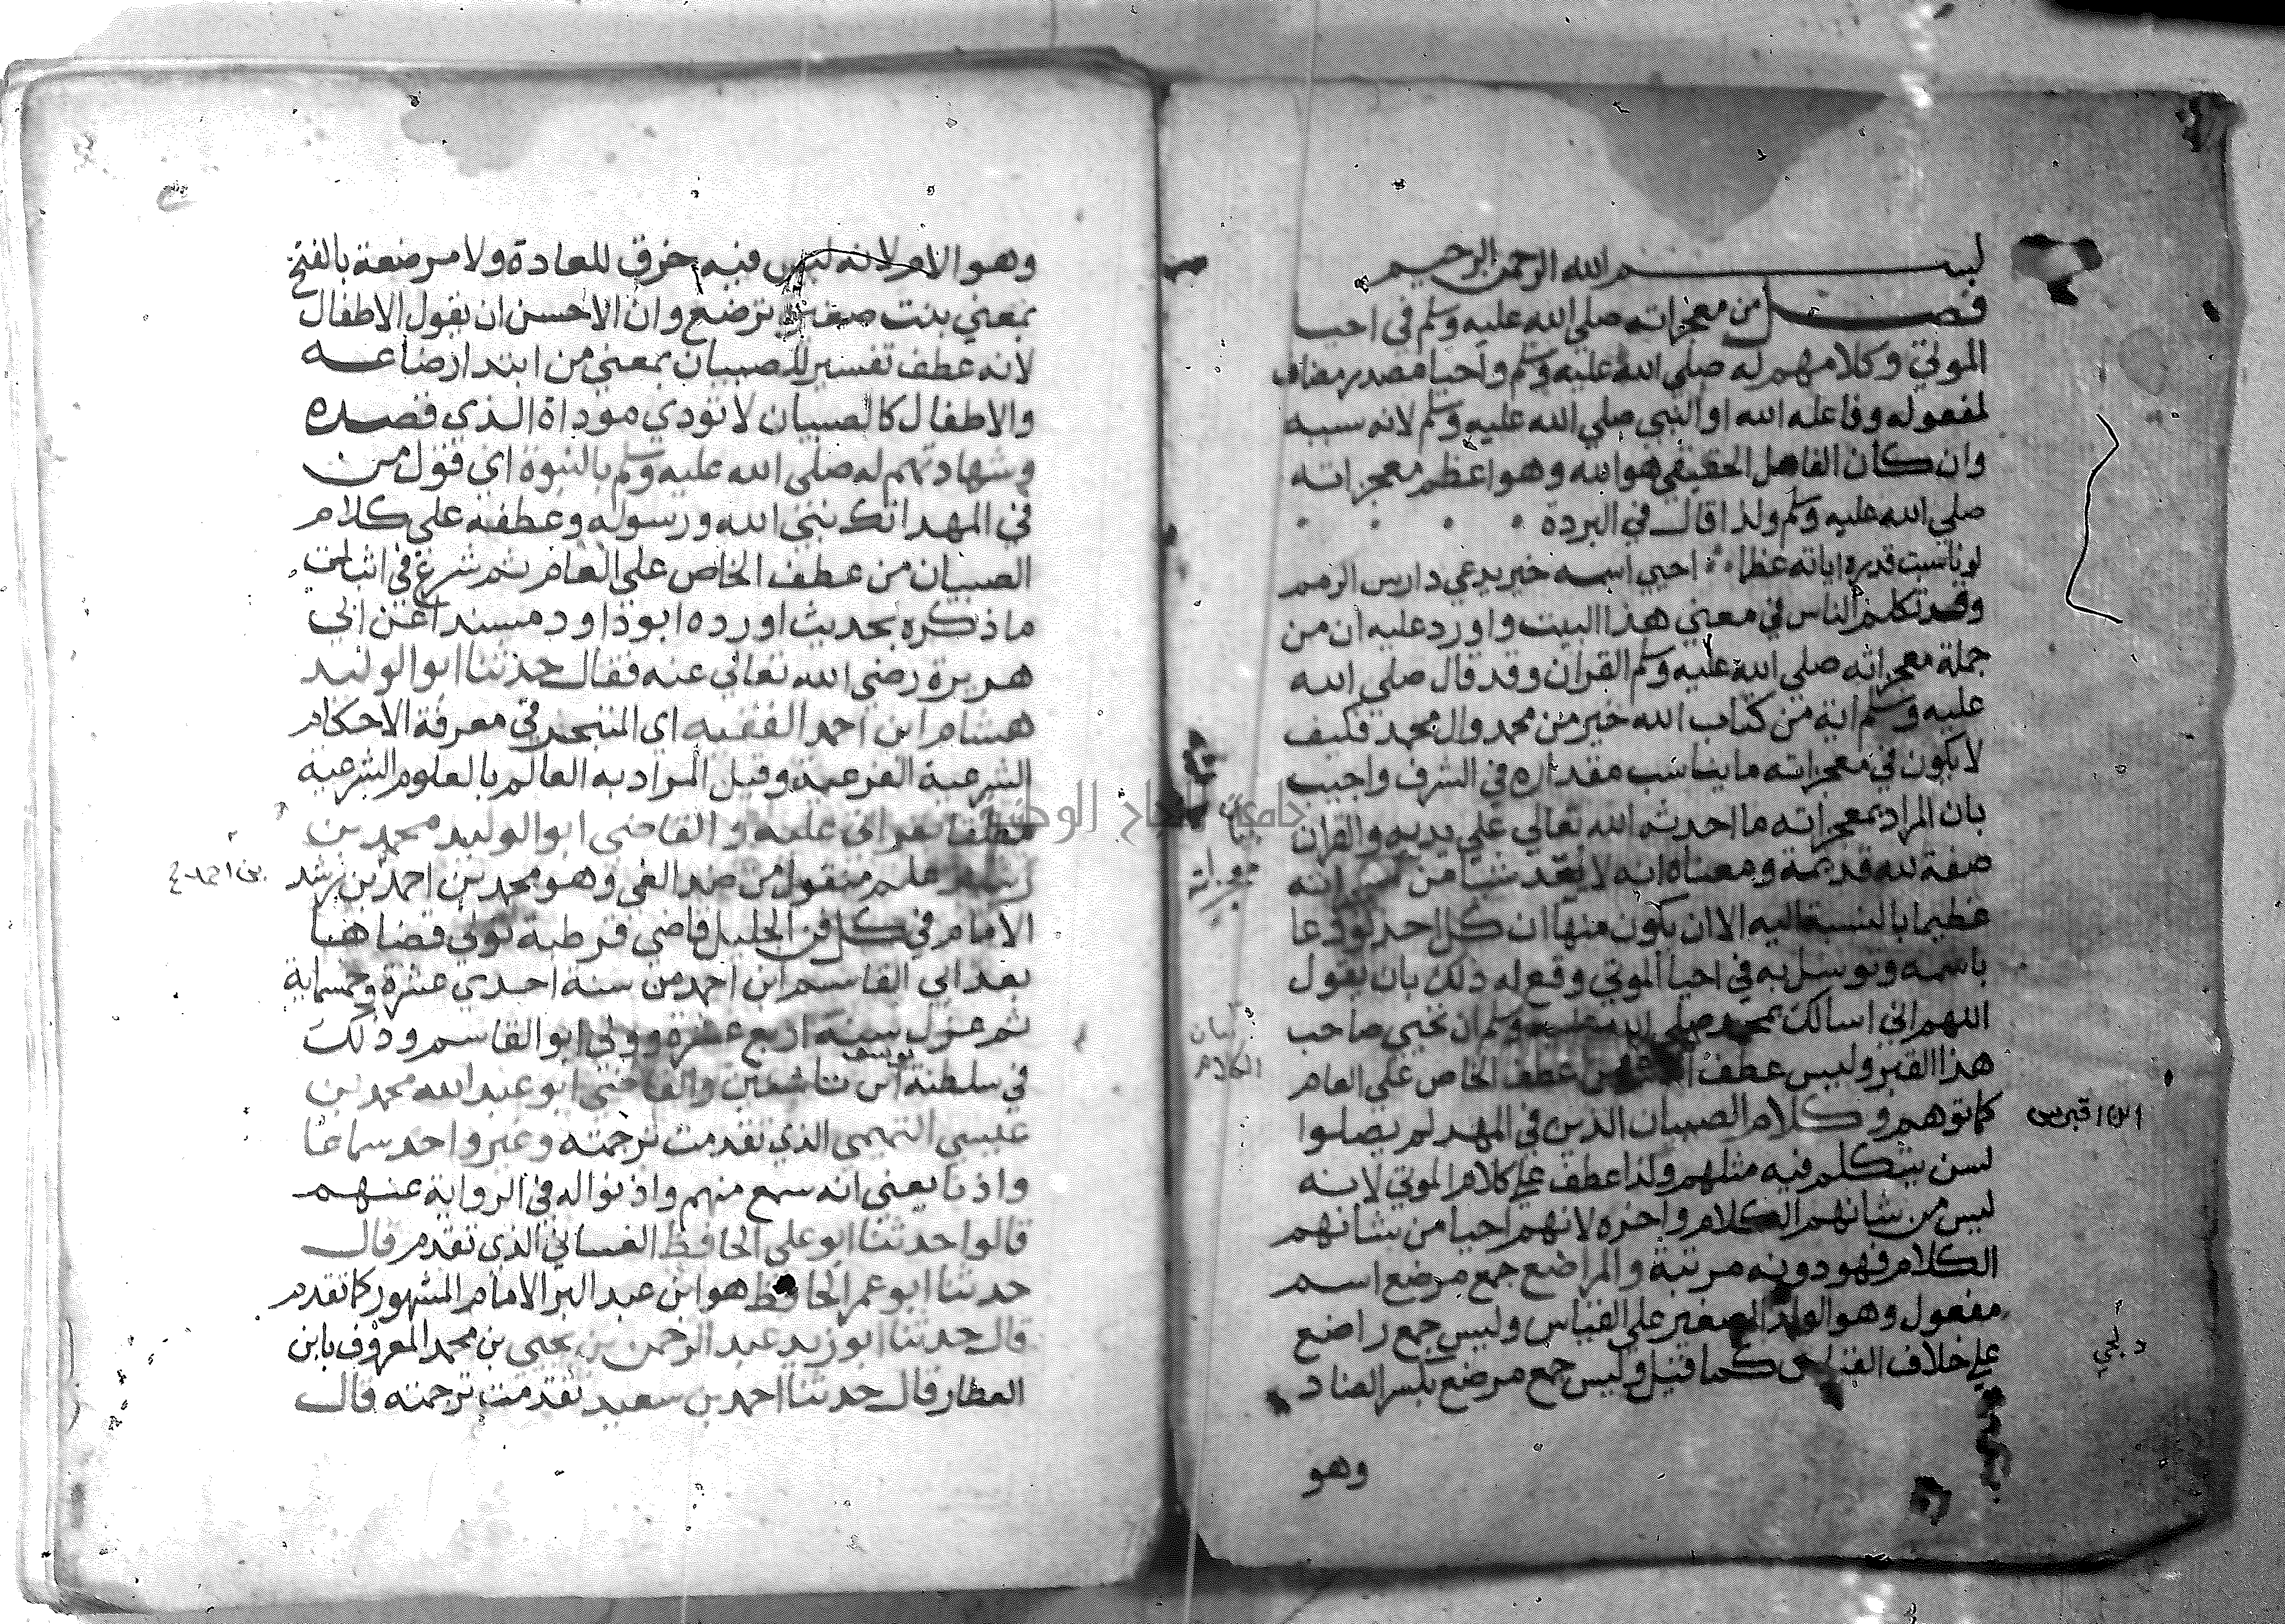 بسم الله الرحمن الرحيم
فصل من معجزاته صلى الله عليه وسلم في احيا
الموتي وكلامهم له صلي الله عليه وسلم واحيا مصدر مضاف
لمفعوله وفاعله الله او النبي صلي الله عليه وسلم لانه سببه
وان كان الفاعل الحقيقي هو الله وهو اعظم معجزاته
صلي الله عليه وسلم ولذا قال في البردة
لو ناسبت قدره اياته عظما احيي اسمه حين يدعي دارس الرمم
وقد تكلم الناس في معني هذا البيت واورد عليه ان من
جملة معجزاته صلي الله عليه وسلم القران وقد قال صلي الله
عليه وسلم اية من كتاب الله خير من محمد وال محمد فكيف
لا يكون في معجزاته ما يناسب مقداره في الشرف واجيب
بان المراد بمعجزاته ما احدثه الله تعالي علي يديه والقران
صفة لله قديمة ومعناه انه لا يعد شيا من معجزاته
عظيما بالنسبة اليه الا ان يكون منها ان كل احد لو دعا
باسمه وتوسل به في احيا الموتي وقع له ذلك بان يقول
اللهم اني اسالك بمحمد صلي الله عليه وسلم ان تحيي صاحب
هذا القبر وليس عطف من عطف الخاص علي العام
كما توهم وكلام الصبيان الذين في المهد لم يصلوا
لسن يتكلم فيه مثلهم ولذا عطف علي كلام الموتي لانه
ليس من شانهم الكلام واخره لانهم احيا من شانهم
الكلام فهو دونه مرتبة والمراضع جمع مرضع اسم
مفعول وهو الولد الصغير علي القياس وليس جمع راضع
علي خلاف القياس كما قيل وليس جمع مرضع بكسر الضاد
وهو
معجزاته
بيان
الكلام
دلجي
وهو الام لانه ليس فيه خرق للعادة ولا مرضعة بالفتح
بمعني بنت صغيرة ترضع وان الاحسن ان يقول الاطفال
لانه عطف تفسير للصبيان بمعني من ابتدا رضاعه
والاطفال كالصبيان لا تودي موداة الذي قصده
وشهادتهم له صلي الله عليه وسلم بالنبوة اي قول من
في المهد انك نبي الله ورسوله وعطفه علي كلام
الصبيان من عطف الخاص علي العام ثم شرع في اثبات
ما ذكره بحديث اورده ابو داود مسندا عن ابي
هريرة رضي الله تعالي عنه فقال حدثنا ابو الوليد
هشام ابن احمد الفقيه اي المتبحر في معرفة الاحكام
الشرعية الفرعية وقيل المراد به العالم بالعلوم الشرعية
مطلقا بقراتي عليه والقاضي ابو الوليد محمد بن
رشد علم منقول من ضد الغي وهو محمد بن احمد بن رشد
الامام في كل فن الجليل قاضي قرطبة تولي قضاها
بعد ابي القاسم ابن احمد من سنة احدي عشرة وخمسماية
ثم عزل سنة اربع عشرة وولي ابو القاسم وذلك
في سلطنة ابن تاشفين والقاضي ابو عبد الله محمد بن
عيسي التميمي الذي تقدمت ترجمته وغير واحد سماعا
واذنا يعني انه سمع منهم واذنوا له في الرواية عنهم
قالوا حدثنا ابو علي الحافظ الغساني الذي تقدم قال
حدثنا ابو عمر الحافظ هو ابن عبد البر الامام المشهور كما تقدم
قال حدثنا ابو زيد عبد الرحمن بن يحيي بن محمد المعروف بابن
العطار قال حدثنا احمد بن سعيد تقدمت ترجمته قال
يوسف
بن احمد
جامعة النجاح الوطنية